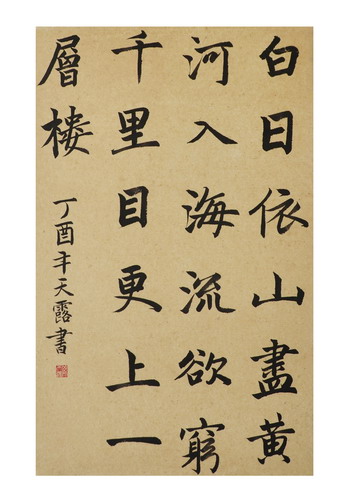 白日依山盡黃
河入海流欲窮
千里目更上一
層楼
丁酉年天露書